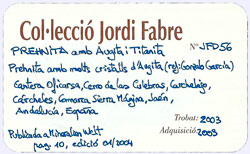 Col·lecció Jordi Fabre
PREHNITA amb Augita i Titanita
Nº JFD56
Prehnita amb molts cristalls d'Augita (ref: Gonzalo García)
Cantera Oficarsa, Cerro de las Culebras, Carchelejo,
Cárcheles, Comarca Sierra Mágina, Jaén,
Andalucía, España
Trobat: 2003
Publicada a Mineralien Welt
Adquisició 2003
pag. 10, edició 01/2004